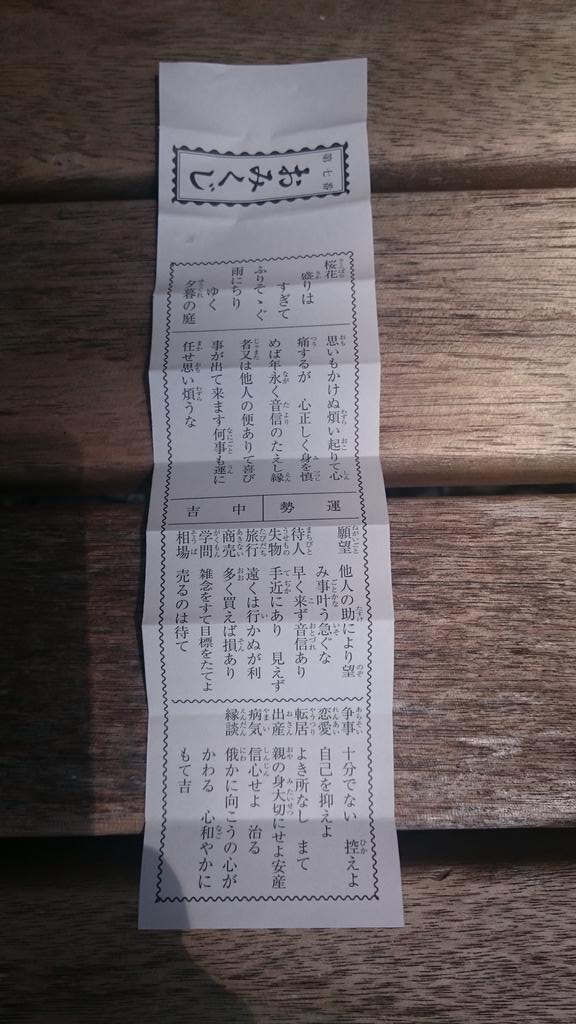 第七番
おみくじ
桜花
盛りは
すぎて
ふりそゝぐ
雨にちり
ゆく
夕暮の庭
思いもかけぬ煩い起りて心
痛するが 心正しく身を慎
めば年永く音信のたえし縁
者又は他人の便ありて喜び
事が出て来ます何事も運に
任せ思い煩うな
運勢
中吉
願望 他人の助により望
み事叶う急ぐな
待人 早く来ず音信あり
失物 手近にあり 見えず
旅行 遠くは行かぬが利
商売 多く買えば損あり
学問 雑念をすて目標をたてよ
相場 売るのは待て
争事 十分でない 控えよ
恋愛 自己を抑えよ
転居 よき所なし まて
出産 親の身大切にせよ安産
病気 信心せよ 治る
縁談 俄かに向こうの心が
かわる 心和やかに
もて吉